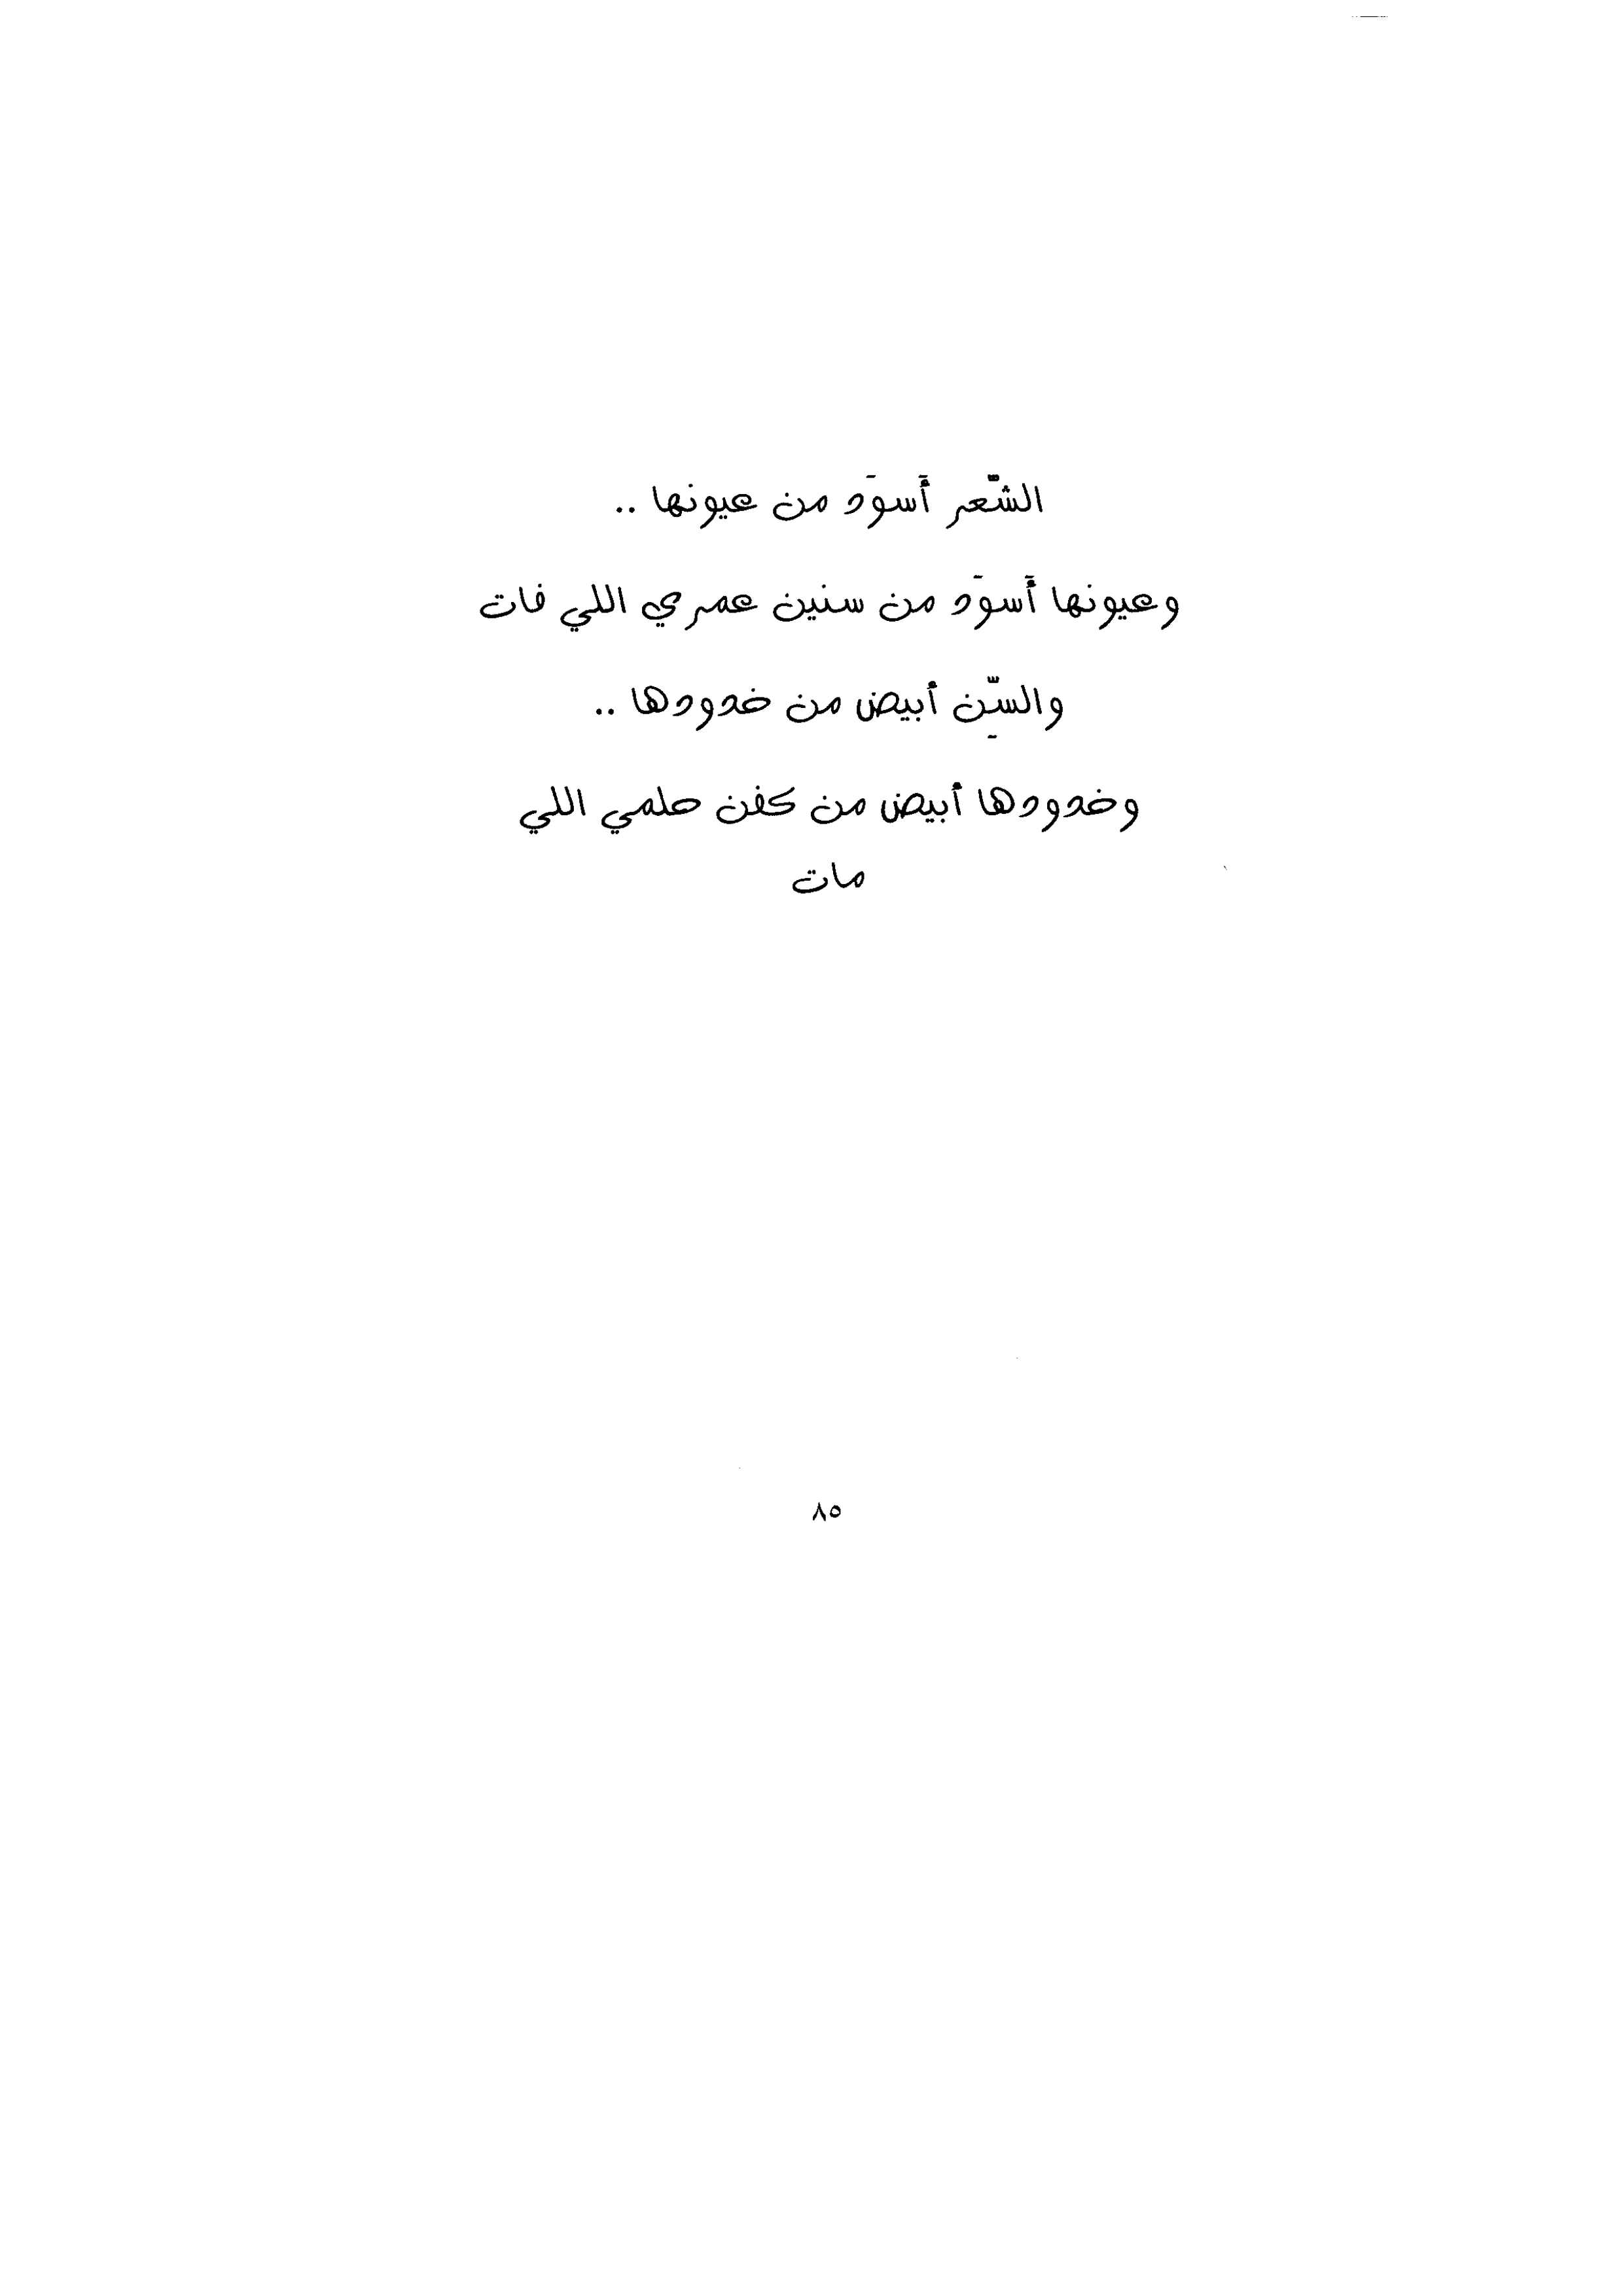 الشّعر أَسوَد من عيونها ..
وعيونها أَسوَد من سنين عمري اللي فات
والسِّن أبيض من خدودها ..
وخدودها أبيض من كفن حلمي اللي
مات
٨٥